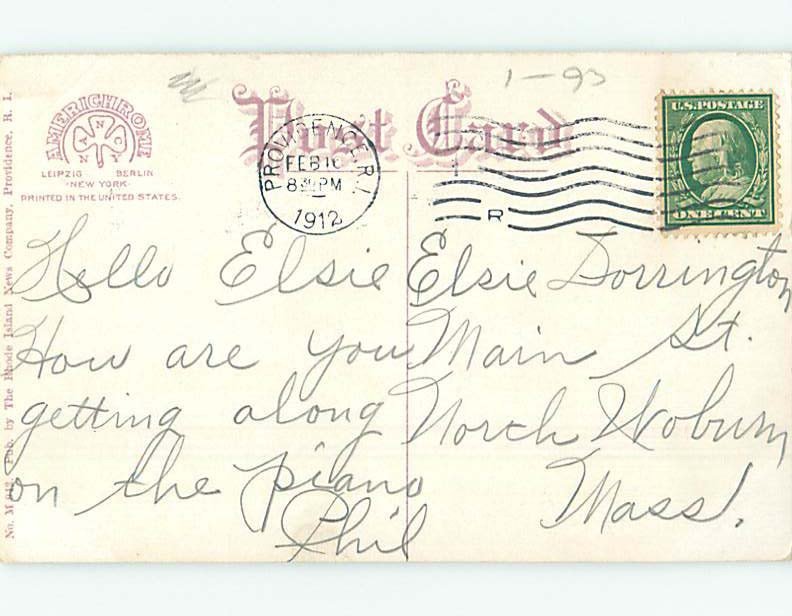 1-93
Post Card
AMERICHROME
A N N C Y
LEIPZIG BERLIN
NEW YORK
PRINTED IN THE UNITED STATES.
PROVIDENCE, R.I.
FEB 10
8 30 PM
1912
R
U.S. POSTAGE
ONE CENT
No. M 942. Pub. by The Rhode Island News Company, Providence, R. I.
Hello Elsie
How are you
getting along
on the piano
Phil
Elsie Dorrington
Main St.
North Woburn
Mass.